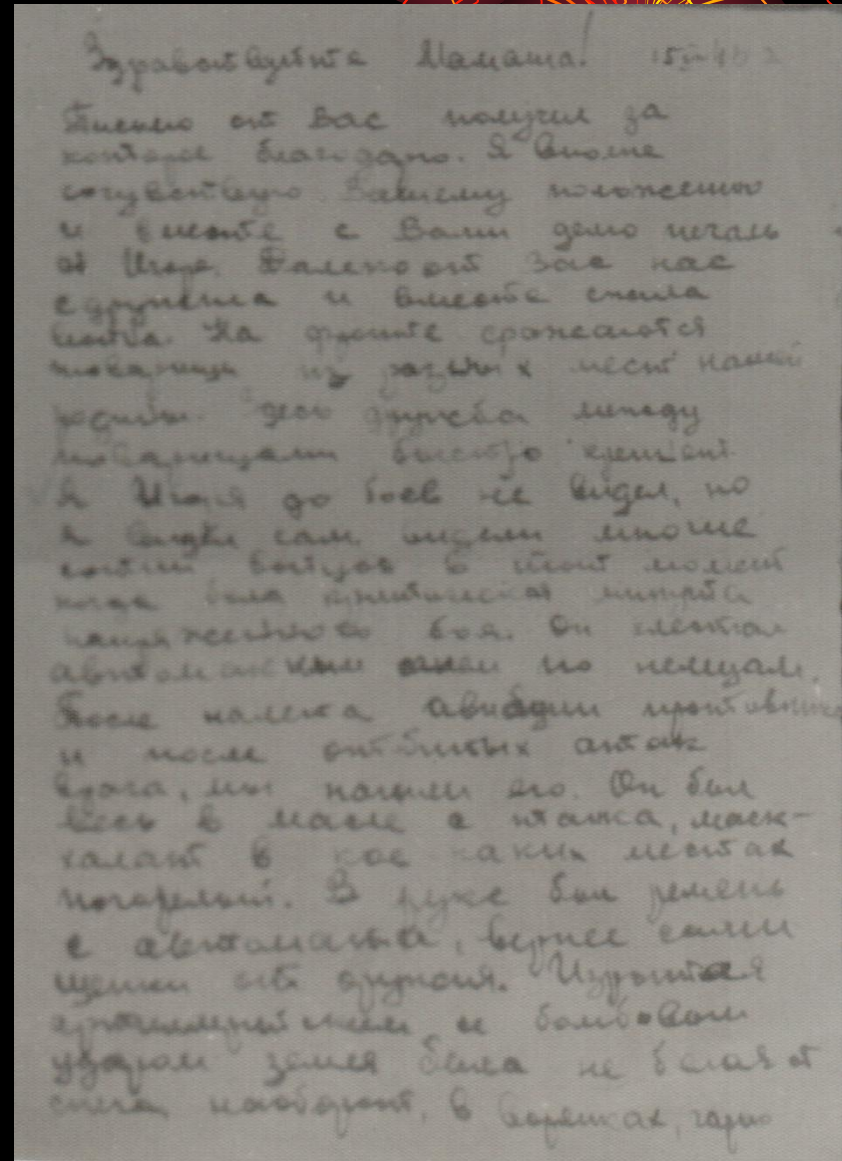 Здравствуйте Мамаша!
Письмо от Вас получил за
которое благодарю. Я вполне
сочувствую Вашему положению
и вместе с Вами делю печаль
об Игоре. Далеко от Вас нас
сдружила и вместе свела
война. На фронте сражаются
товарищи из разных мест нашей
родины. Здесь дружба между
товарищами быстро крепнет
Я Игоря до боев не видел, но
я видел сам, видели многие
сотни бойцов в тот момент
когда была критическая минута
напряженного боя. Он хлестал
автоматным огнем по немцам.
После налета авиации противника
и после отбитых атак
врага, мы нашли его. Он был
весь в масле с танка, маск-
халат в кое каких местах
погорелый. В руке был ремень
с автомата, вернее одни
щепки от оружия. Изрытая
артиллерийским и бомбовым
ударом земля была не белая от
снега, наоборот, в воронках,